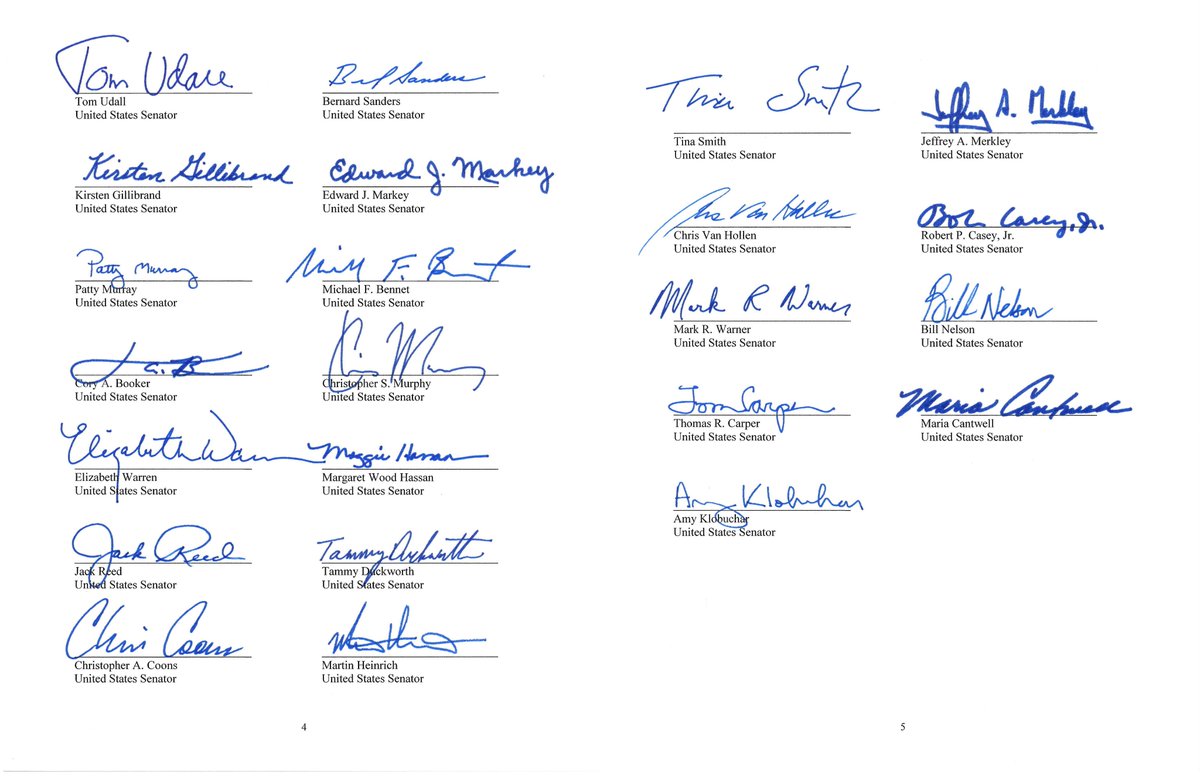 Tom Udall
Tom Udall
United States Senator
Bernard Sanders
United States Senator
Kirsten Gillibrand
Kirsten Gillibrand
United States Senator
Edward J. Markey
Edward J. Markey
United States Senator
Patty Murray
Patty Murray
United States Senator
Michael F. Bennet
United States Senator
Cory A. Booker
United States Senator
Christopher S. Murphy
United States Senator
Elizabeth Warren
Elizabeth Warren
United States Senator
Maggie Hassan
Margaret Wood Hassan
United States Senator
Jack Reed
Jack Reed
United States Senator
Tammy Duckworth
Tammy Duckworth
United States Senator
Chris Coons
Christopher A. Coons
United States Senator
Martin Heinrich
United States Senator
4
Tina Smith
Tina Smith
United States Senator
Jeffrey A. Merkley
Jeffrey A. Merkley
United States Senator
Chris Van Hollen
Chris Van Hollen
United States Senator
Bob Casey, Jr.
Robert P. Casey, Jr.
United States Senator
Mark R Warner
Mark R. Warner
United States Senator
Bill Nelson
Bill Nelson
United States Senator
Tom Carper
Thomas R. Carper
United States Senator
Maria Cantwell
Maria Cantwell
United States Senator
Amy Klobuchar
Amy Klobuchar
United States Senator
5